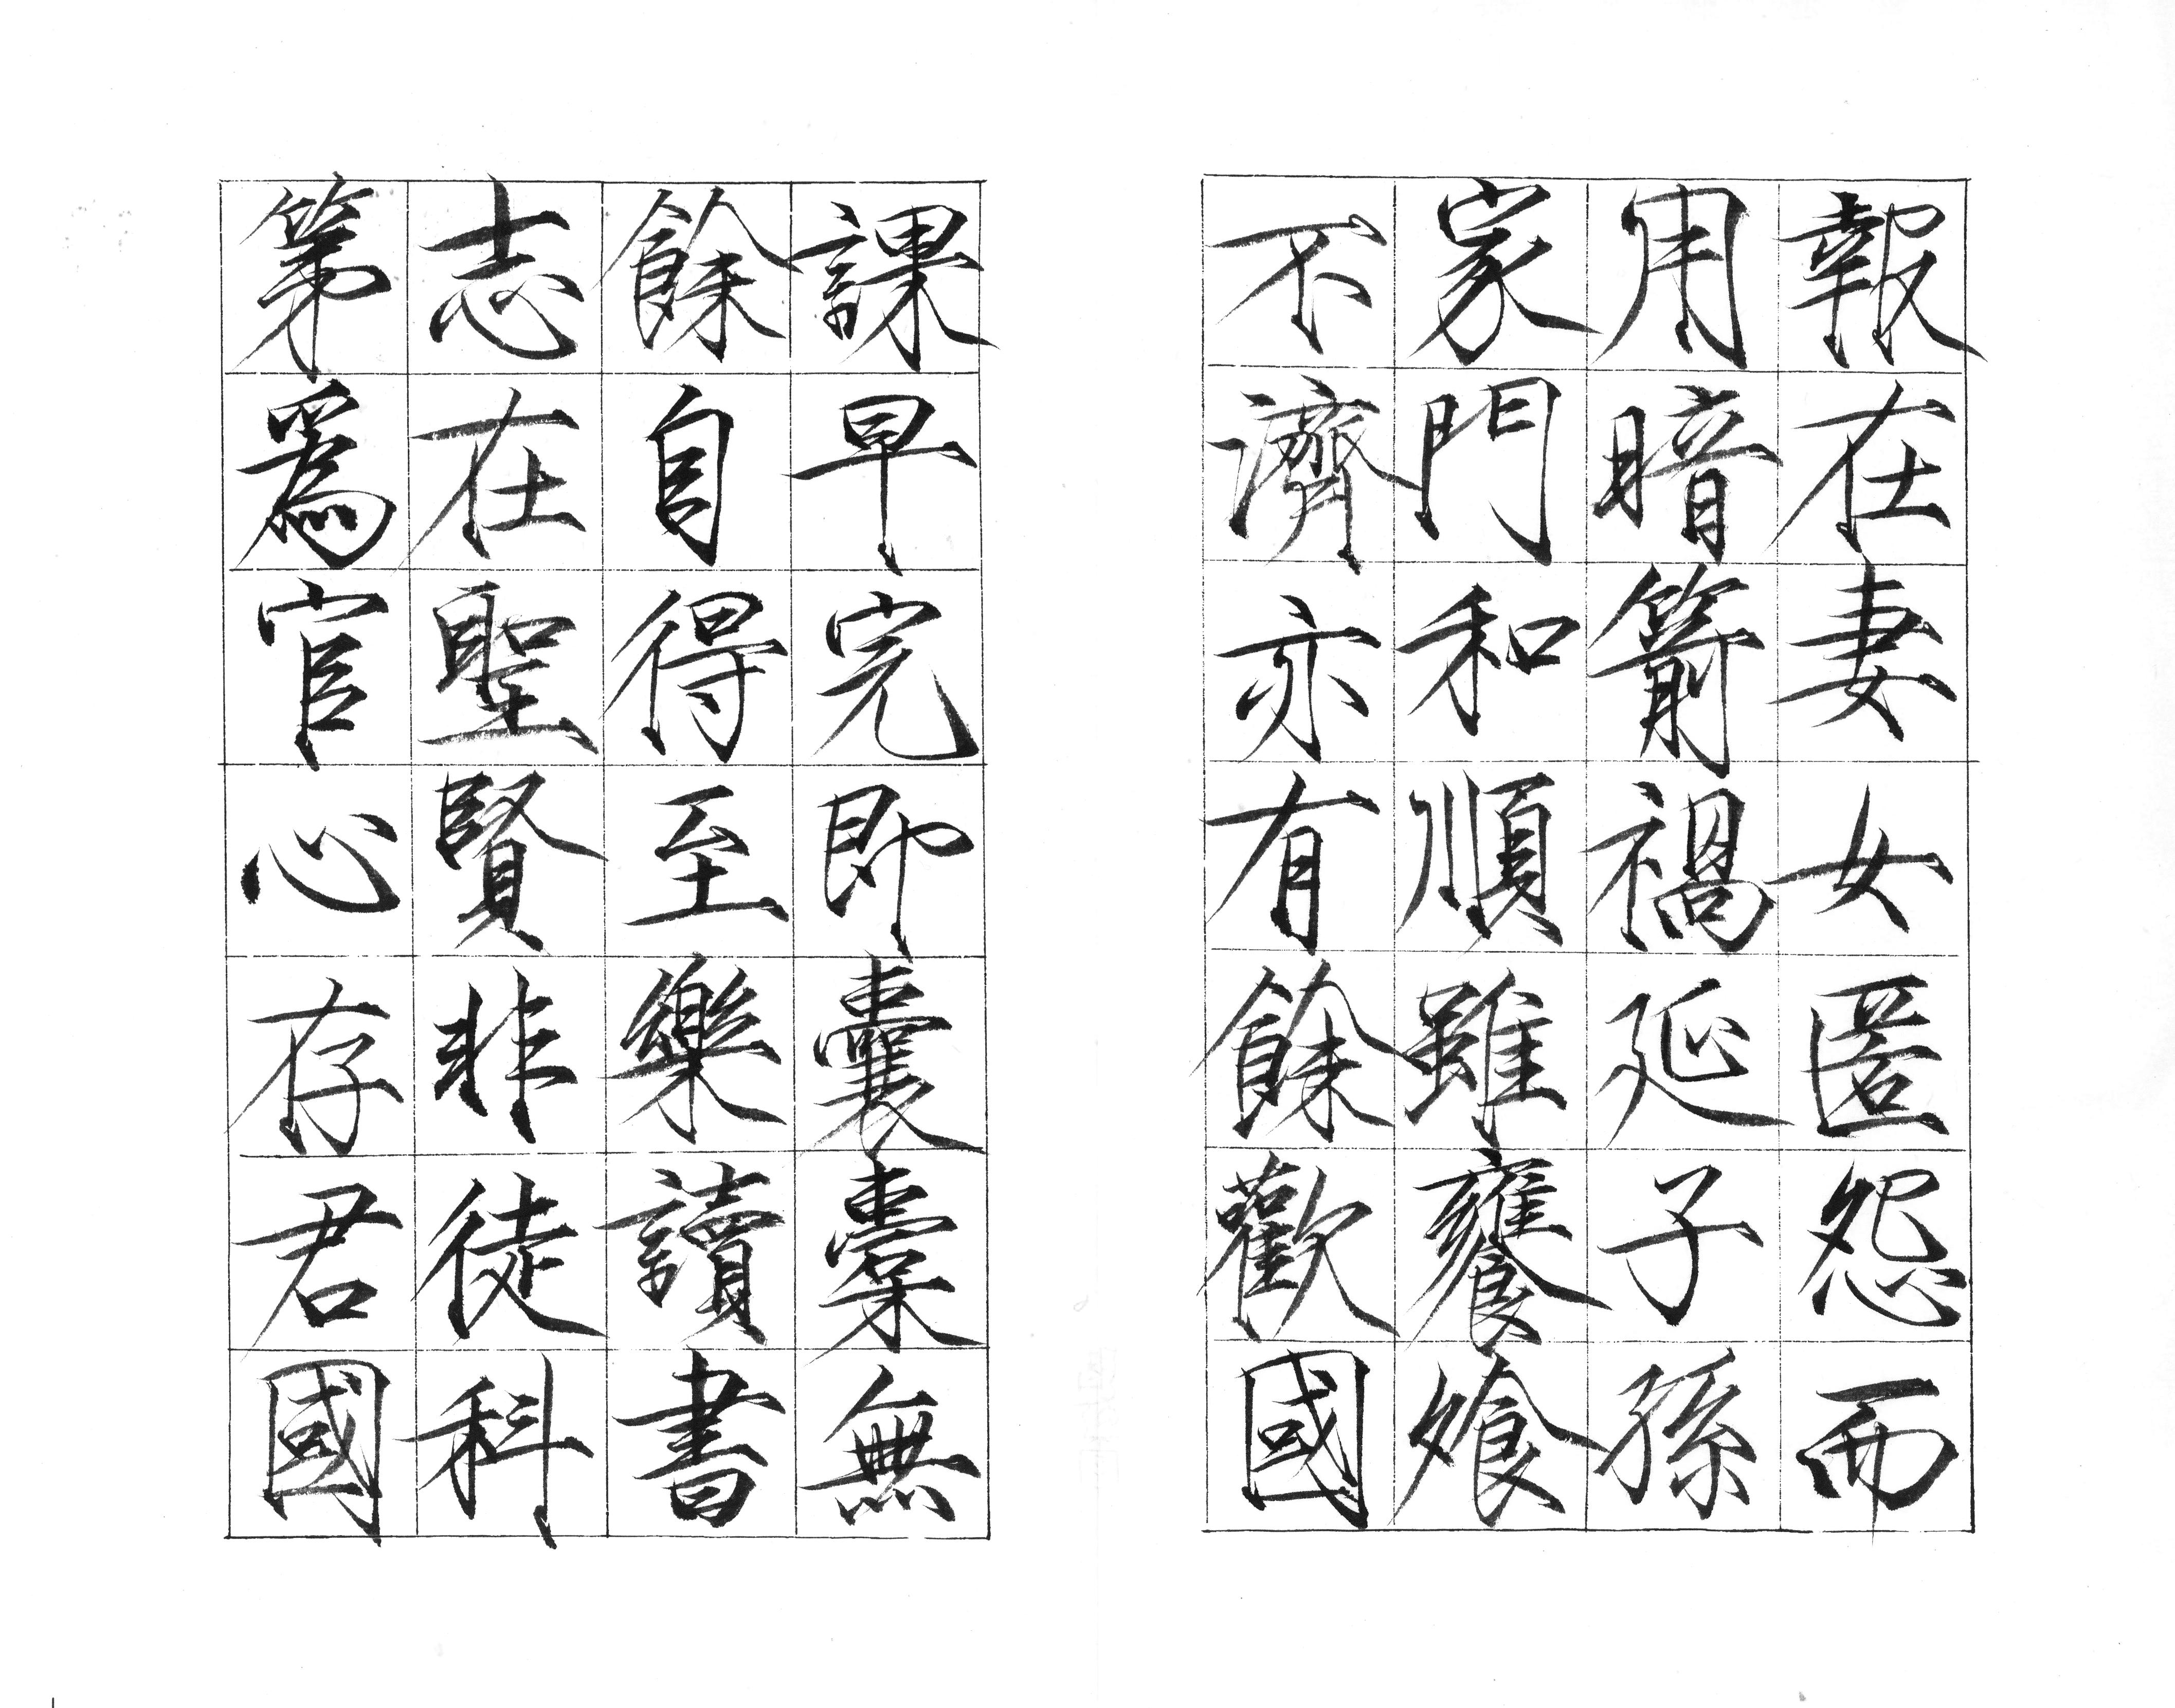 報在妻女匿怨而
用暗箭禍延子孫
家門和順雖饔飧
不濟亦有餘歡國
課早完即囊橐無
餘自得至樂讀書
志在聖賢非徒科
第爲官心存君國